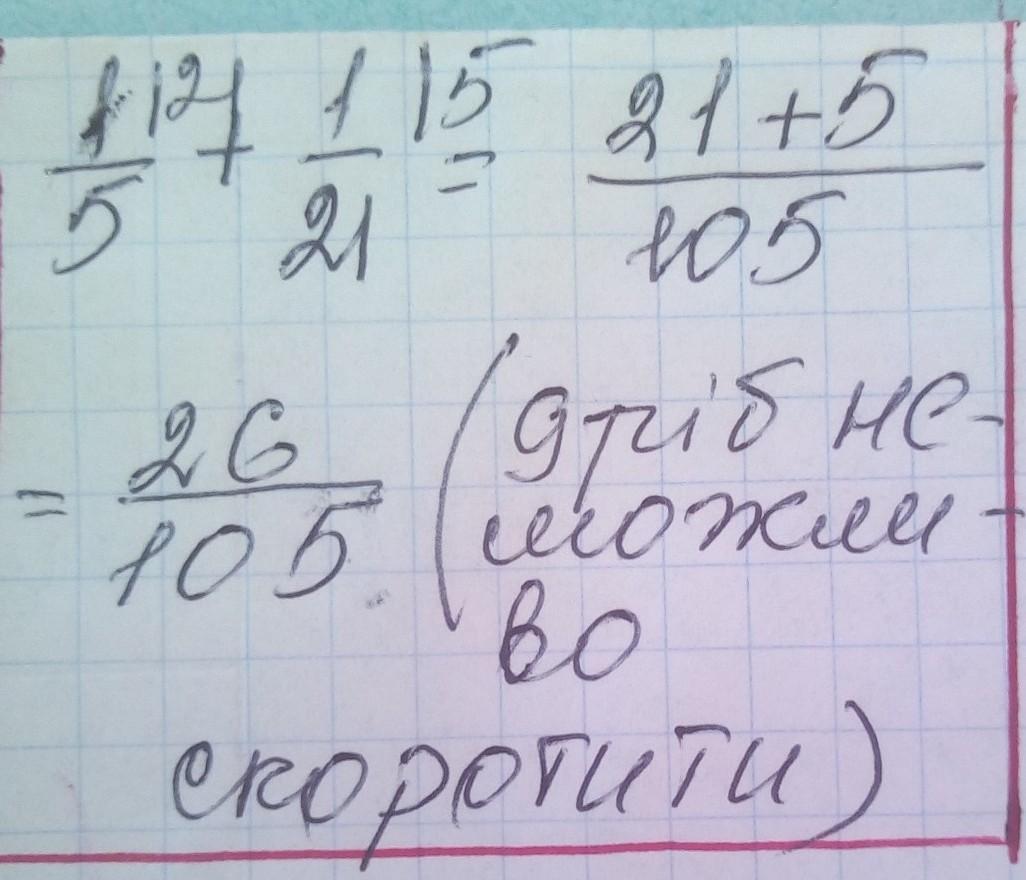 1/5 |21 + 1/21 |5 = 21+5/105
= 26/105 (дріб не-
можли-
во
скоротити)